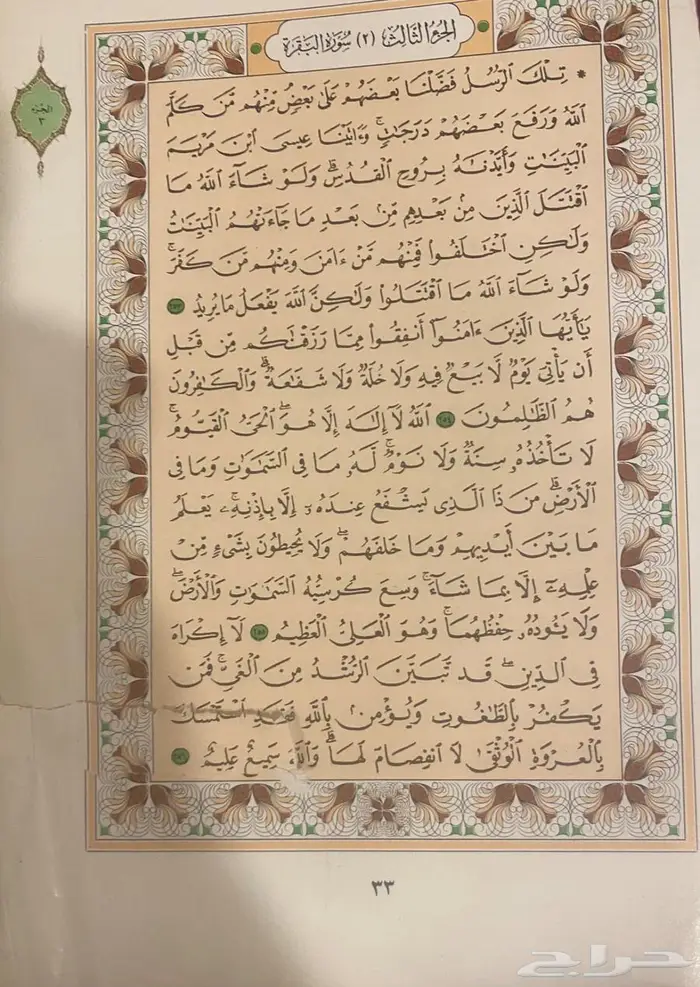 الجزء الثالث (٢) سورة البقرة
الجزء
٣
* تِلْكَ ٱلرُّسُلُ فَضَّلْنَا بَعْضَهُمْ عَلَىٰ بَعْضٍ مِّنْهُم مَّن كَلَّمَ
ٱللَّهُ وَرَفَعَ بَعْضَهُمْ دَرَجَٰتٍ ۚ وَءَاتَيْنَا عِيسَى ٱبْنَ مَرْيَمَ
ٱلْبَيِّنَٰتِ وَأَيَّدْنَٰهُ بِرُوحِ ٱلْقُدُسِ ۗ وَلَوْ شَآءَ ٱللَّهُ مَا
ٱقْتَتَلَ ٱلَّذِينَ مِنۢ بَعْدِهِم مِّنۢ بَعْدِ مَا جَآءَتْهُمُ ٱلْبَيِّنَٰتُ
وَلَٰكِنِ ٱخْتَلَفُوا۟ فَمِنْهُم مَّنْ ءَامَنَ وَمِنْهُم مَّن كَفَرَ ۚ
وَلَوْ شَآءَ ٱللَّهُ مَا ٱقْتَتَلُوا۟ وَلَٰكِنَّ ٱللَّهَ يَفْعَلُ مَا يُرِيدُ ٢٥٣
يَٰٓأَيُّهَا ٱلَّذِينَ ءَامَنُوٓا۟ أَنفِقُوا۟ مِمَّا رَزَقْنَٰكُم مِّن قَبْلِ
أَن يَأْتِىَ يَوْمٌ لَّا بَيْعٌ فِيهِ وَلَا خُلَّةٌ وَلَا شَفَٰعَةٌ ۗ وَٱلْكَٰفِرُونَ
هُمُ ٱلظَّٰلِمُونَ ٢٥٤ ٱللَّهُ لَآ إِلَٰهَ إِلَّا هُوَ ٱلْحَىُّ ٱلْقَيُّومُ ۚ
لَا تَأْخُذُهُۥ سِنَةٌ وَلَا نَوْمٌ ۚ لَّهُۥ مَا فِى ٱلسَّمَٰوَٰتِ وَمَا فِى
ٱلْأَرْضِ ۗ مَن ذَا ٱلَّذِى يَشْفَعُ عِندَهُۥٓ إِلَّا بِإِذْنِهِۦ ۚ يَعْلَمُ
مَا بَيْنَ أَيْدِيهِمْ وَمَا خَلْفَهُمْ ۖ وَلَا يُحِيطُونَ بِشَىْءٍ مِّنْ
عِلْمِهِۦٓ إِلَّا بِمَا شَآءَ ۚ وَسِعَ كُرْسِيُّهُ ٱلسَّمَٰوَٰتِ وَٱلْأَرْضَ ۖ
وَلَا يَـُٔودُهُۥ حِفْظُهُمَا ۚ وَهُوَ ٱلْعَلِىُّ ٱلْعَظِيمُ ٢٥٥ لَآ إِكْرَاهَ
فِى ٱلدِّينِ ۖ قَد تَّبَيَّنَ ٱلرُّشْدُ مِنَ ٱلْغَىِّ ۚ فَمَن
يَكْفُرْ بِٱلطَّٰغُوتِ وَيُؤْمِنۢ بِٱللَّهِ فَقَدِ ٱسْتَمْسَكَ
بِٱلْعُرْوَةِ ٱلْوُثْقَىٰ لَا ٱنفِصَامَ لَهَا ۗ وَٱللَّهُ سَمِيعٌ عَلِيمٌ ٢٥٦
٣٣
حراج